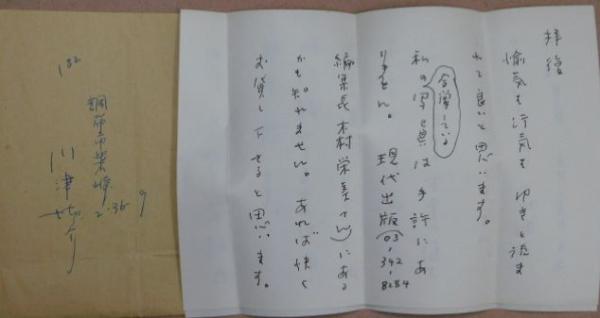 拝復
愉気も行気も ゆきと読ま
れて良いと思います。
合掌している
私の写真は手許にあ
りません。現代出版(03-342-8284
編集長木村栄さん)にある
かも知れません。あれば快く
お貸し下さると思います。
182
調布市柴崎
2-36-9
川津祐介